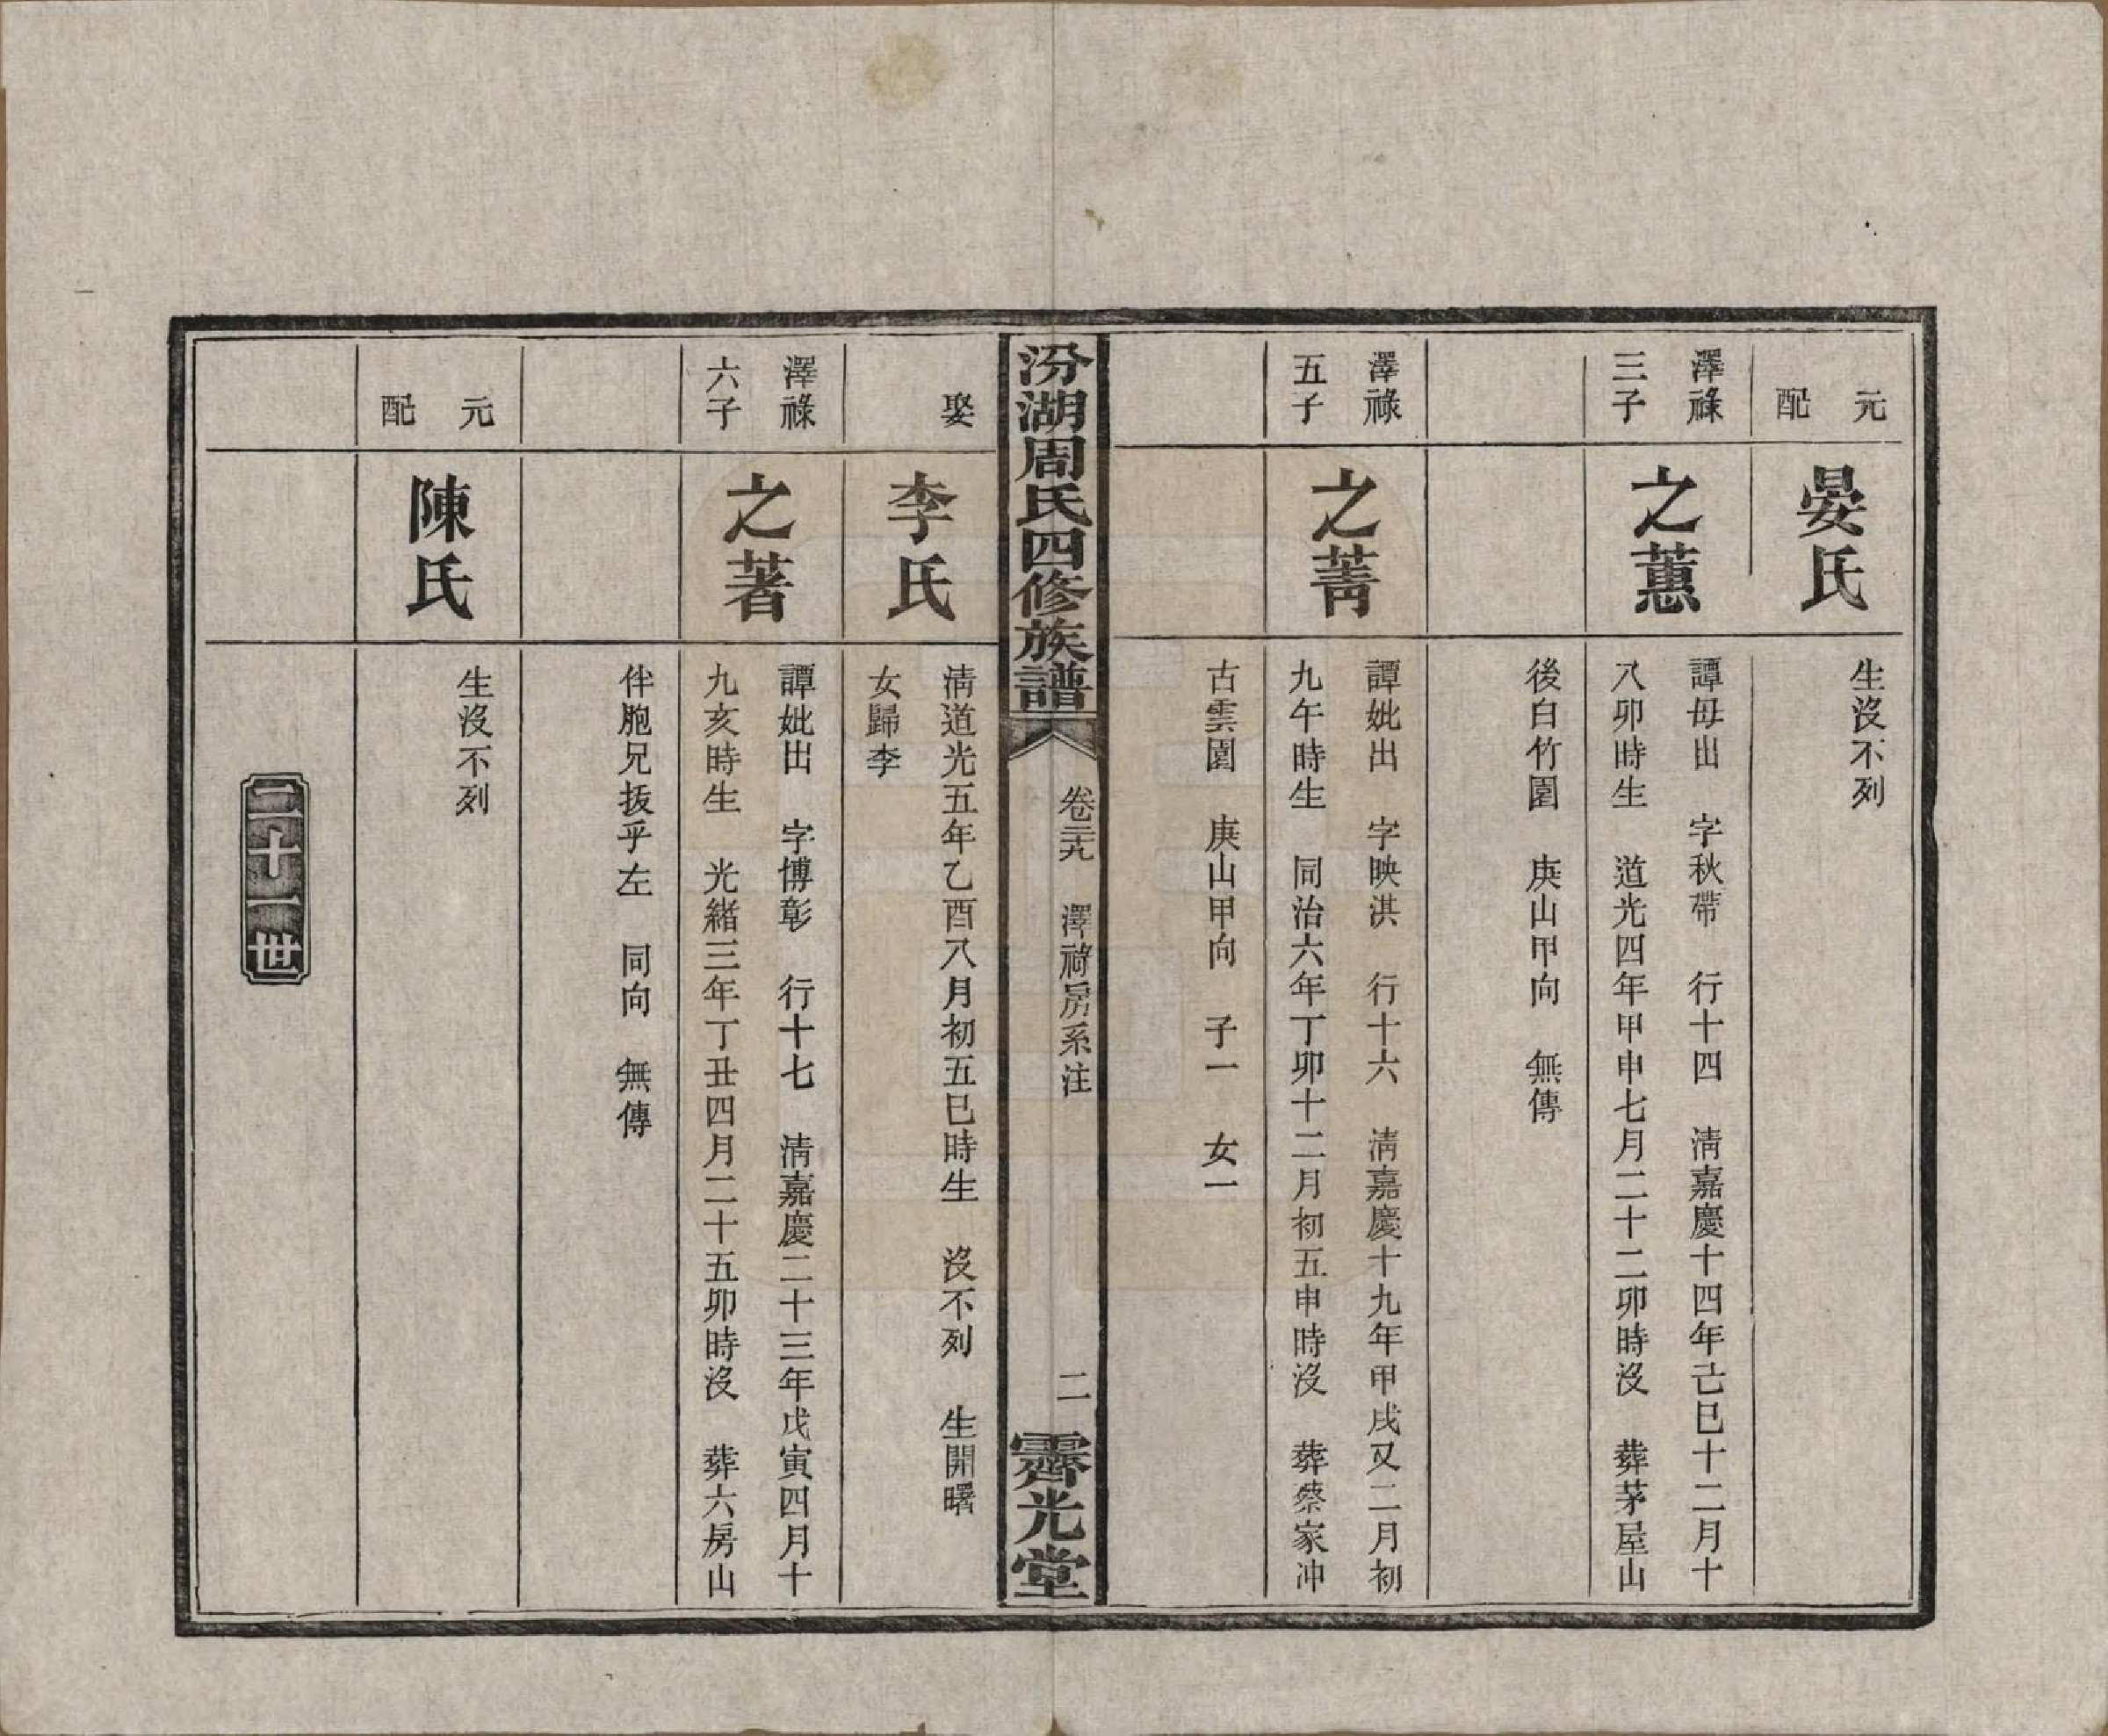 元
配
晏氏
生沒不列
澤祿
三子
之蕙
譚毋出　字秋帶　行十四　淸嘉慶十四年己巳十二月十
八卯時生　道光四年甲申七月二十二卯時沒　葬茅屋山
後白竹園　庚山甲向　無傳
澤祿
五子
之菁
譚妣出　字映淇　行十六　淸嘉慶十九年甲戌又二月初
九午時生　同治六年丁卯十二月初五申時沒　葬蔡家冲
古雲園　庚山甲向　子一　女一
汾湖周氏四修族譜
卷二十九　澤祿房系注
二
霽光堂
娶
李氏
淸道光五年乙酉八月初五巳時生　沒不列　生開曙
女歸李
澤祿
六子
之著
譚妣出　字博彰　行十七　淸嘉慶二十三年戊寅四月十
九亥時生　光緒三年丁丑四月二十五卯時沒　葬六房山
伴胞兄拔乎左　同向　無傳
元
配
陳氏
生沒不列
二十一世